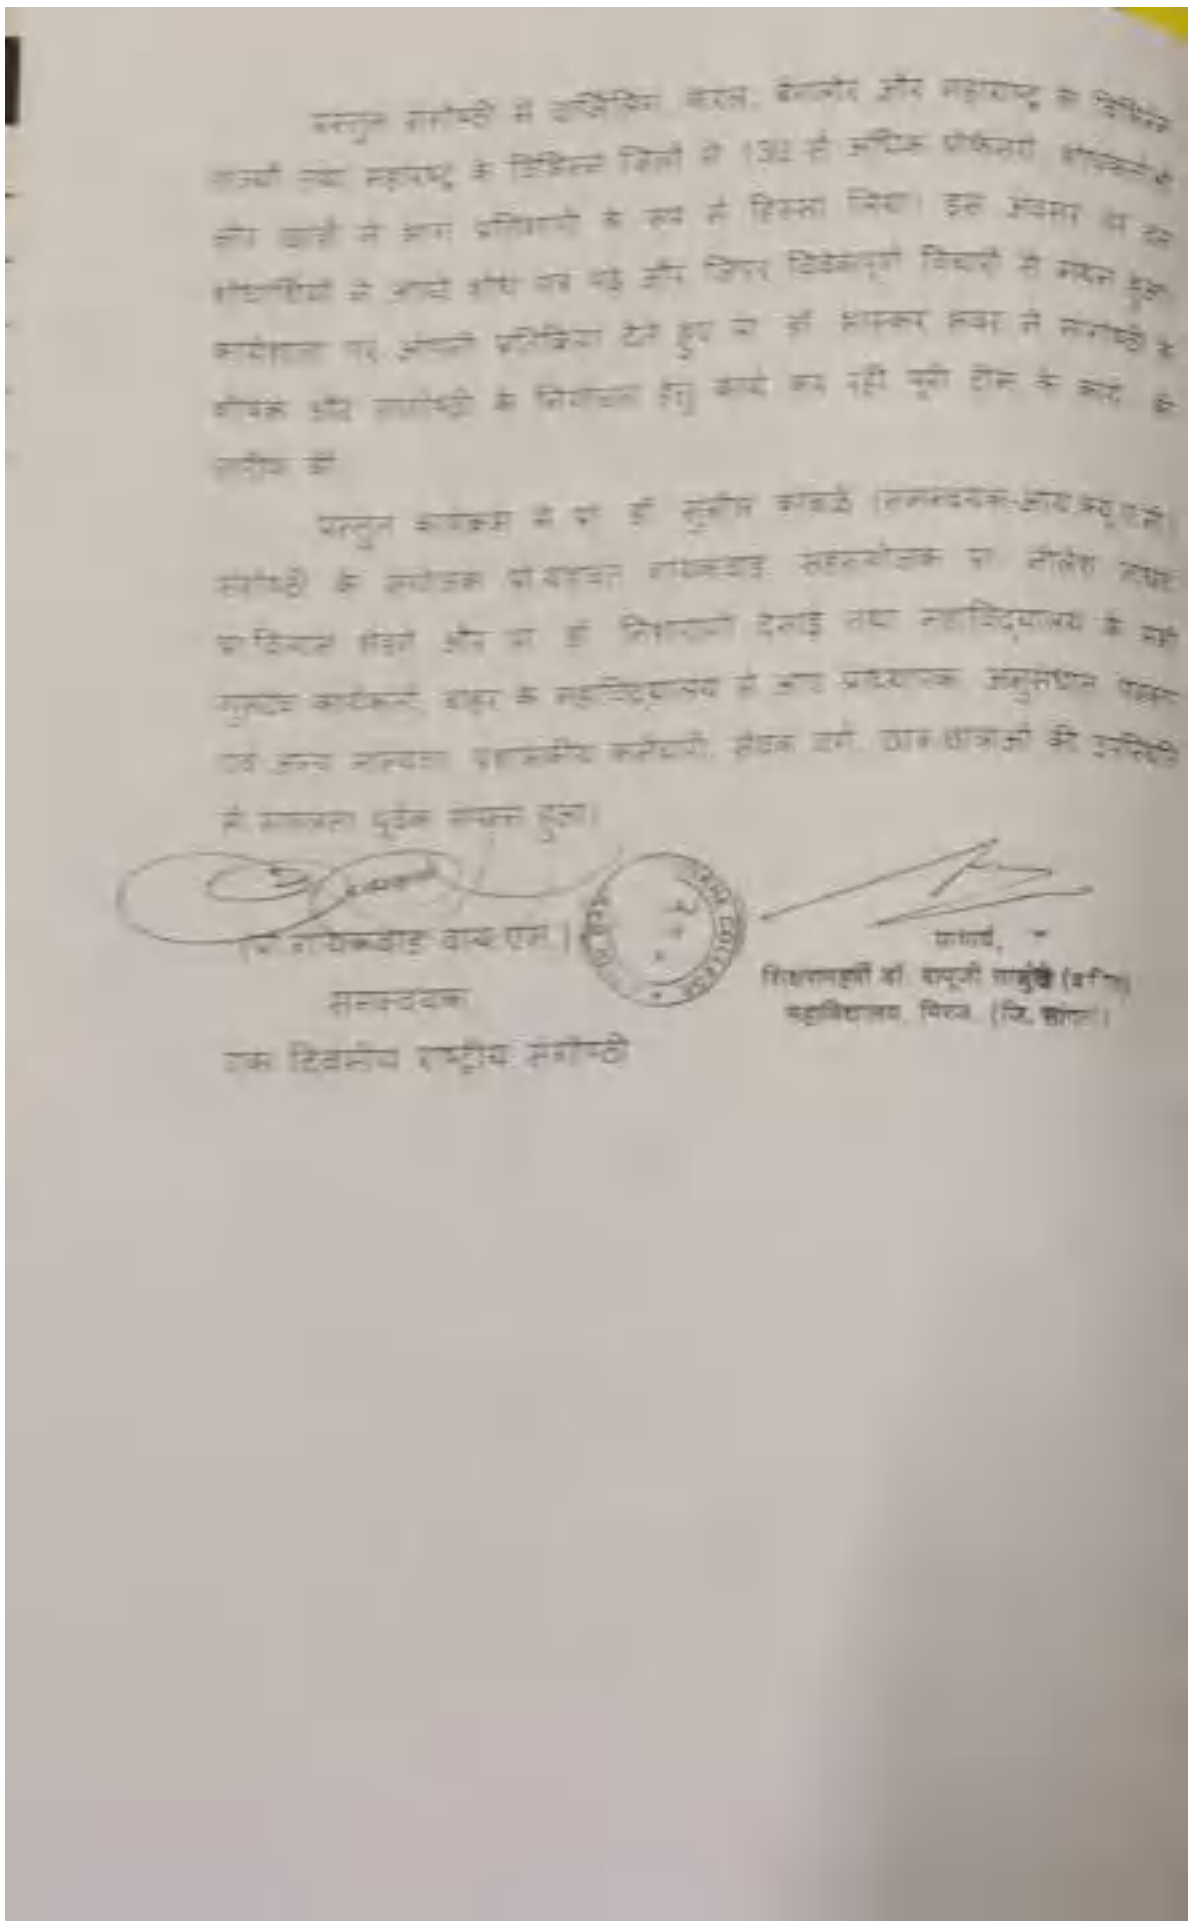 प्रस्तुत संगोष्ठी में दार्जिलिंग, केरल, बेंगलोर और महाराष्ट्र के विभिन्न
राज्यों तथा महाराष्ट्र के विभिन्न जिलों से 130 से अधिक प्रोफेसरों,
और छात्रों ने भाग प्रतिभागी के रूप में हिस्सा लिया। इस अवसर पर
शोधार्थियों ने अपने शोध पत्र पढ़े और जिनपर विवेकपूर्ण विचारों से मंथन हुआ।
कार्यशाला पर अपनी प्रतिक्रिया देते हुए प्रा. डॉ. भास्कर ने संगोष्ठी के
और संगोष्ठी के नियोजन हेतु कार्य कर रही पूरी टीम के कार्य की
तारीफ की
प्रस्तुत कार्यक्रम में प्रा. डॉ. सुनील कांबळे (समन्वयक-आय.क्यू.ए.सी.)
संगोष्ठी के संयोजक प्रो.यशवंत गायकवाड, सहसंयोजक प्रा. नीलेश
और प्रा. डॉ. निशाराणी देसाई तथा महाविद्यालय के सभी
गुरुदेव कार्यकर्ता, बाहर के महाविद्यालय से आए प्राध्यापक, अनुसंधान
एवं अन्य मान्यवर, प्रशासकीय कर्मचारी, सेवक वर्ग, छात्र-छात्राओं की उपस्थिति
में सफलता पूर्वक संपन्न हुआ।
(प्रा.गायकवाड वाय.एन.)
समन्वयक
एक दिवसीय राष्ट्रीय संगोष्ठी
COLLEGE
प्राचार्य,
शिक्षणमहर्षी डॉ. बापूजी साळुंखे
महाविद्यालय, मिरज. (जि. सांगली)